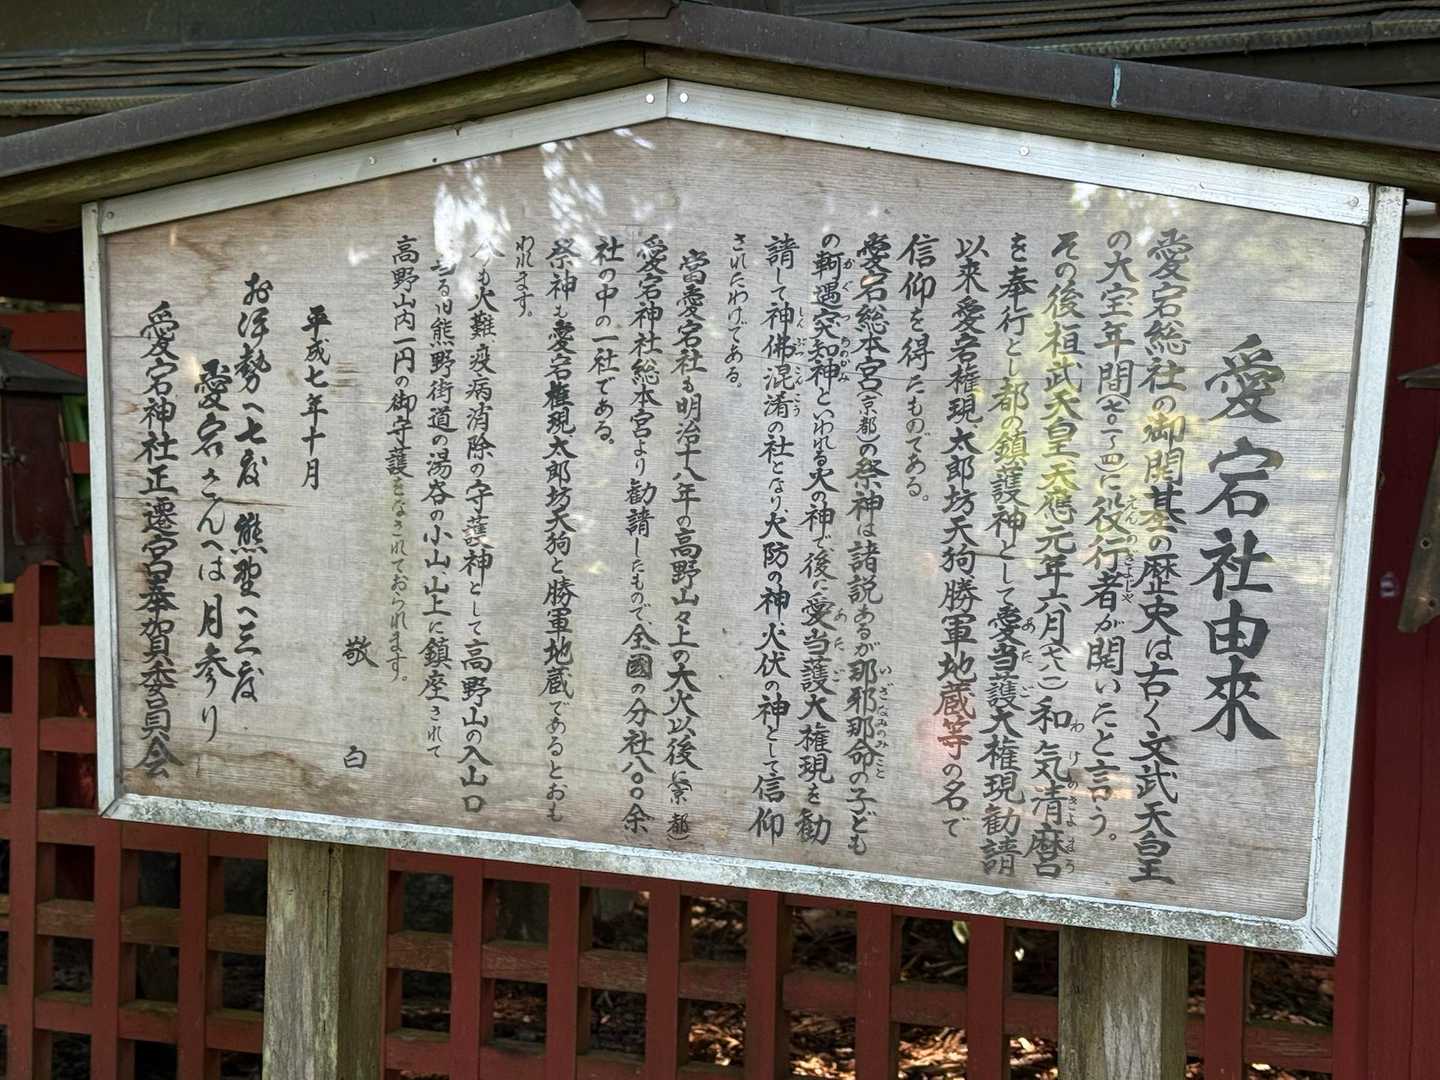 愛宕社由來
愛宕総社の御開基の歴史は古く文武天皇
の大宝年間(七〇一〜四)に役行者が開いたと言う。
えんのぎょうじゃ
その後桓武天皇天應元年六月(七八一)和気清麿
わけのきよまろ
を奉行とし都の鎮護神として愛当護大権現勧請
あたご
以来愛宕権現太郎坊天狗勝軍地蔵等の名で
信仰を得たものである。
愛宕総本宮(京都)の祭神は諸説あるが那那命の子ども
いざなみのみこと
の軻遇突知神といわれる火の神で後に愛当護大権現を勧
かぐつちのかみ
あたご
請して神佛混淆の社となり火防の神火伏の神として信仰
しんぶつこんこう
されたわけである。
當愛宕社も明治十八年の高野山々上の大火以後に(京都)
愛宕神社総本宮より勧請したもので全國の分社八〇〇余
社の中の一社である。
祭神も愛宕権現太郎坊天狗と勝軍地蔵であるとおも
われます。
今も火難疫病消除の守護神として高野山の入山口
旧熊野街道の湯谷の小山山上に鎮座されて
高野山内一円の御守護をなされておられます。
敬白
平成七年十月
お伊勢へ七度熊野へ三度
愛宕さんへは月参り
愛宕神社正遷宮奉賀委員会